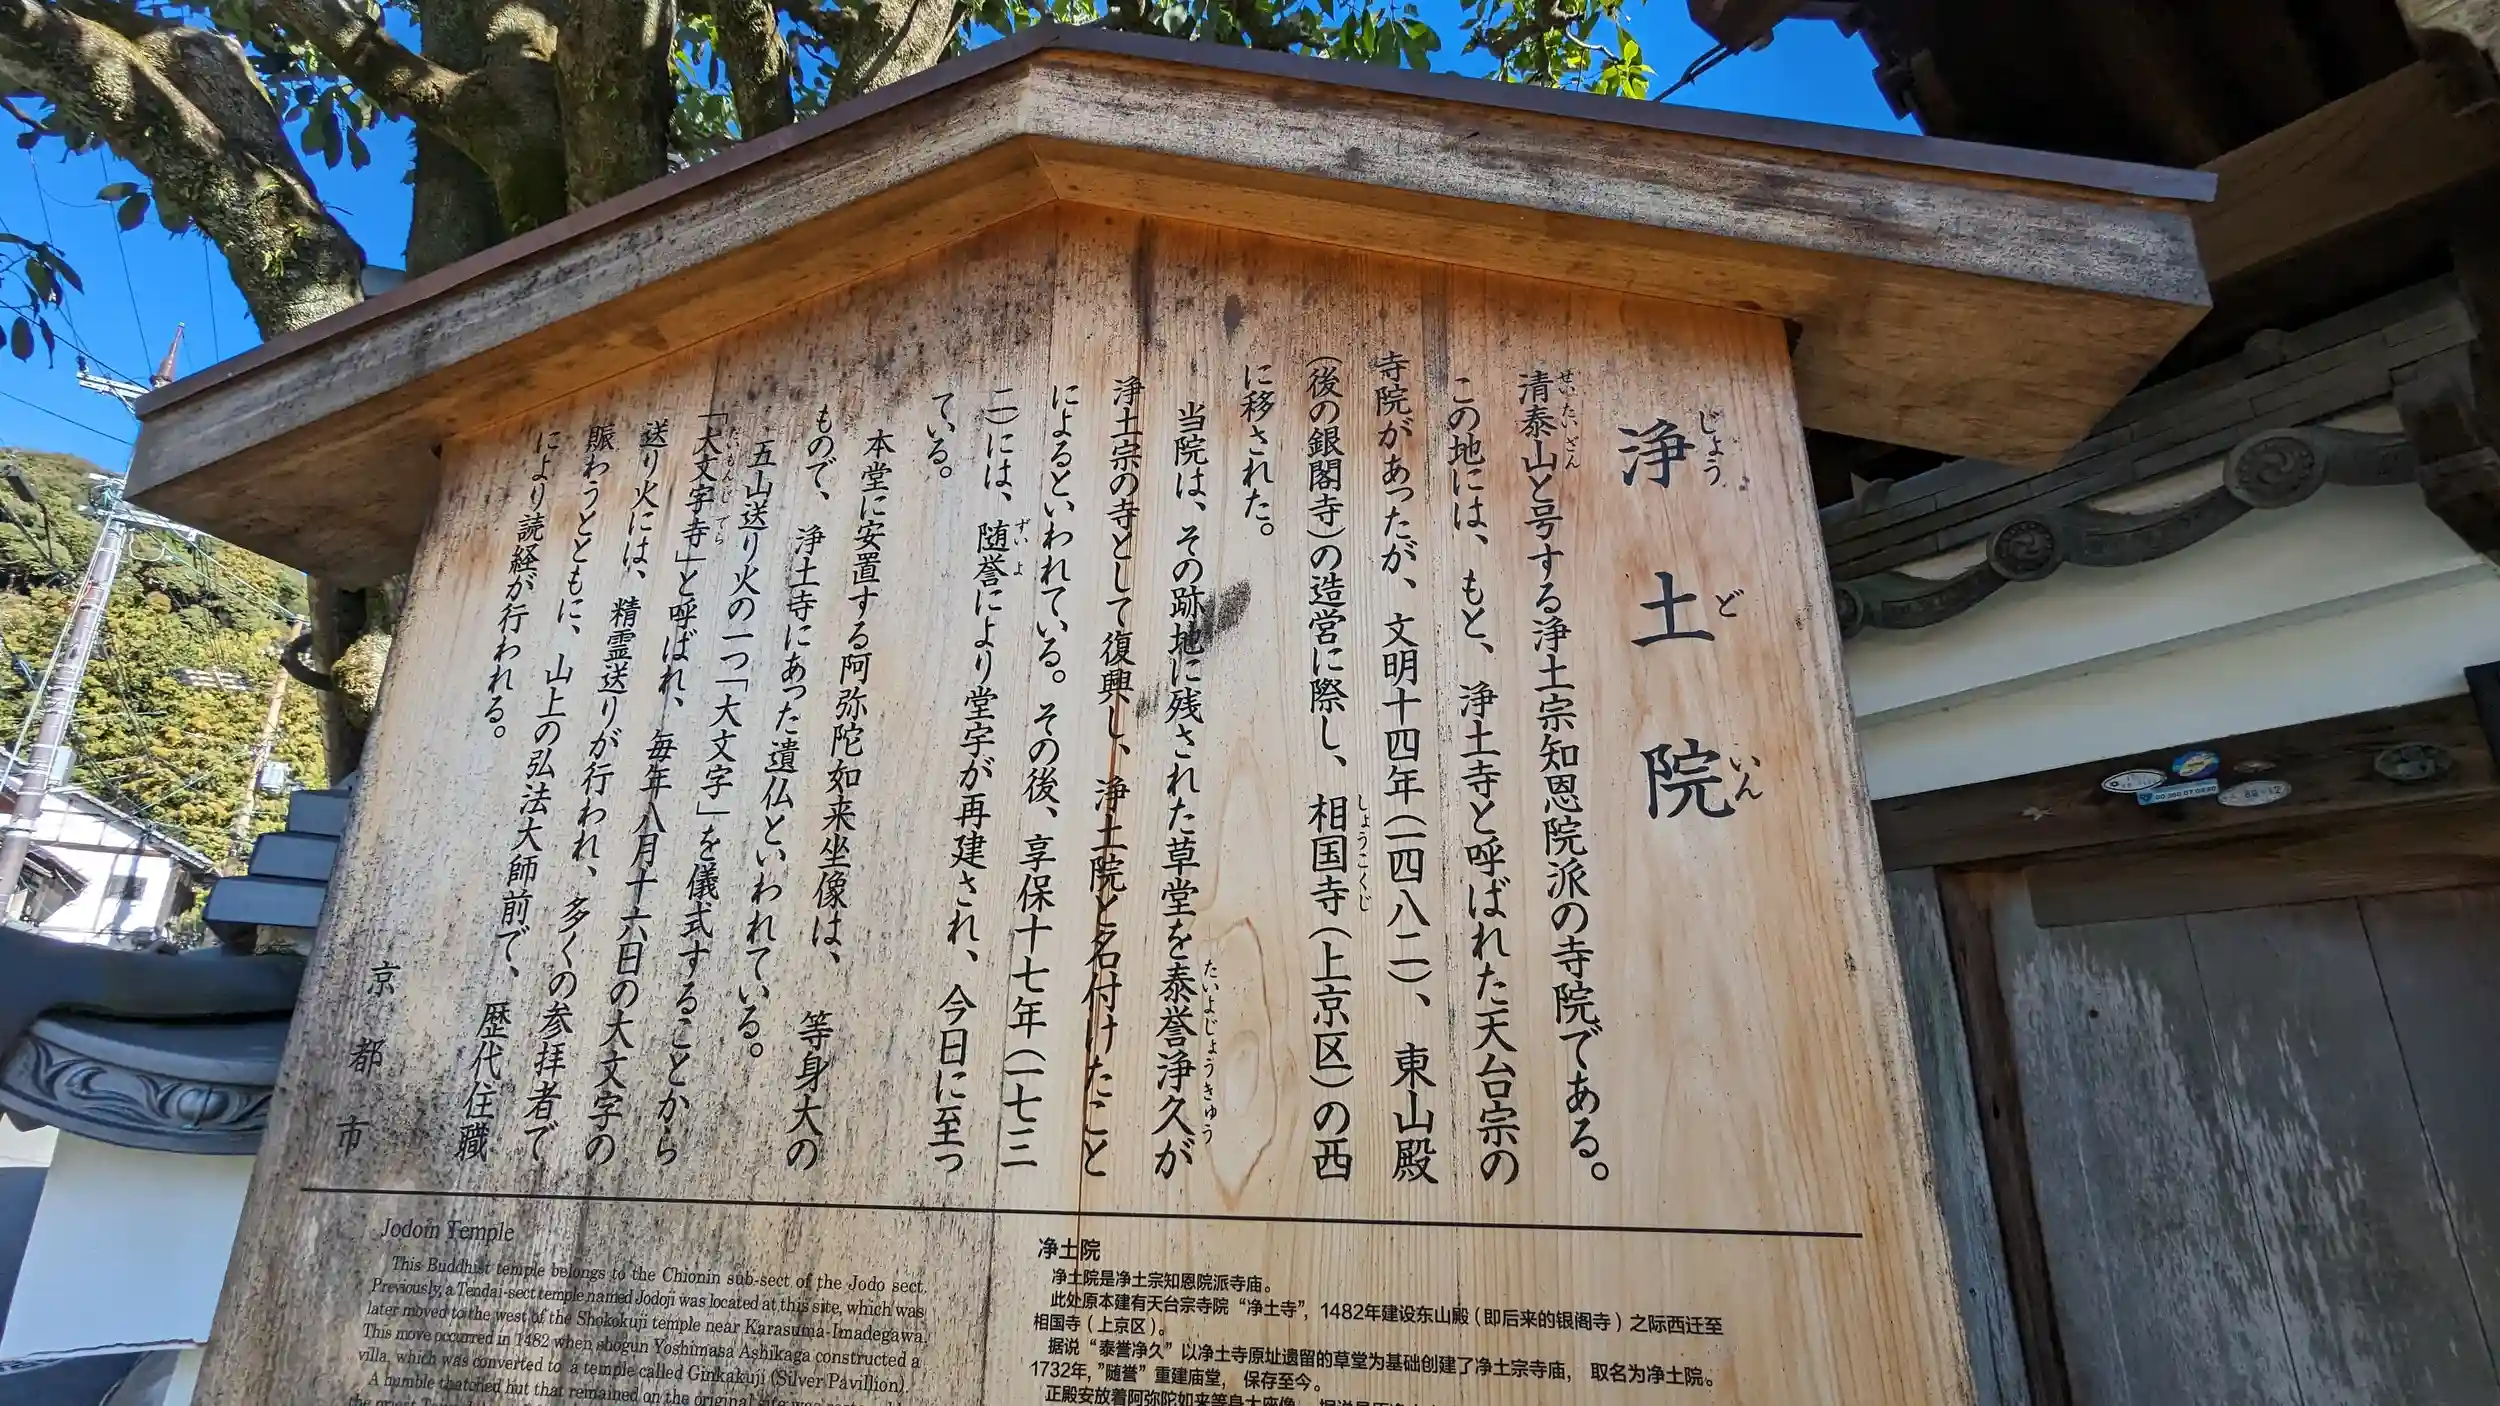 浄土院
じょうどいん
清泰山と号する浄土宗知恩院派の寺院である。
せいたいざん
この地には、もと、浄土寺と呼ばれた天台宗の
寺院があったが、文明十四年(一四八二)、東山殿
(後の銀閣寺)の造営に際し、相国寺(上京区)の西
しょうこくじ
に移された。
当院は、その跡地に残された草堂を泰誉浄久が
たいよじょうきゅう
浄土宗の寺として復興し、浄土院と名付けたこと
によるといわれている。その後、享保十七年(一七三
二)には、随誉により堂宇が再建され、今日に至っ
ずいよ
ている。
本堂に安置する阿弥陀如来坐像は、等身大の
もので、浄土寺にあった遺仏といわれている。
五山送り火の一つ「大文字」を儀式することから
「大文字寺」と呼ばれ、毎年八月十六日の大文字の
だいもんじでら
送り火には、精霊送りが行われ、多くの参拝者で
賑わうとともに、山上の弘法大師前で、歴代住職
により読経が行われる。
京都市
Jodoin Temple
This Buddhist temple belongs to the Chionin sub-sect of the Jodo sect.
Previously, a Tendai-sect temple named Jodoji was located at this site, which was
later moved to the west of the Shokokuji temple near Karasuma-Imadegawa.
This move occurred in 1482 when shogun Yoshimasa Ashikaga constructed a
villa, which was converted to a temple called Ginkakuji (Silver Pavillion).
A humble thatched hut that remained on the original site was
净土院
净土院是净土宗知恩院派寺庙。
此处原本建有天台宗寺院“净土寺”，1482年建设东山殿（即后来的银阁寺）之际西迁至
相国寺（上京区）。
据说“泰誉净久”以净土寺原址遗留的草堂为基础创建了净土宗寺庙，取名为净土院。
1732年，”随誉”重建庙堂，保存至今。
正殿安放着阿弥陀如来等身大座像